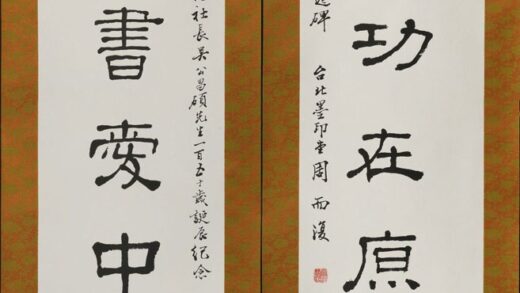 功在
碑 台北墨印堂周而
社長吳公昌碩先生一百五十歲誕辰紀念
書愛中